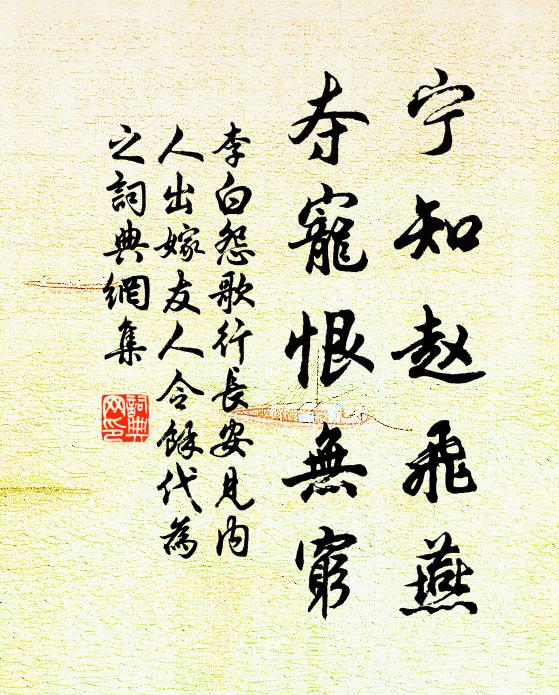 宁知赵飛燕
夺寵恨無窮
李白怨歌行長安見内
人出嫁友人令餘代為
之詞典網集
詞典
网印